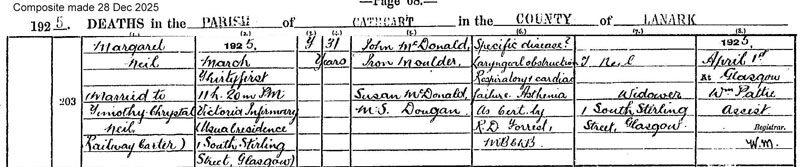 Composite made 28 Dec 2025
—Page 68.—
1925. DEATHS in the PARISH of CATHCART in the COUNTY of LANARK
(1.) (2.) (3.) (4.) (5.) (6.) (7.) (8.)
203
Margaret
Neil
Married to
Timothy Chrystal
Neil
Railway Carter)
1925,
March
Thirtyfirst
11 h. 20 m PM
Victoria Infirmary
(Usual residence
1 South Stirling
Street, Glasgow)
F
31
Years
John McDonald,
Iron Moulder,
Susan McDonald,
M.S. Dougan.
Specific disease?
Laryngeal obstruction
Respiratory & cardiac
failure. Asthenia
As Cert. by
R.D. Forrest,
MB ChB
T. Neil
Widower
1 South Stirling
Street, Glasgow.
1925,
April 1st
At Glasgow
Wm
Assist
Registrar.
W.M.